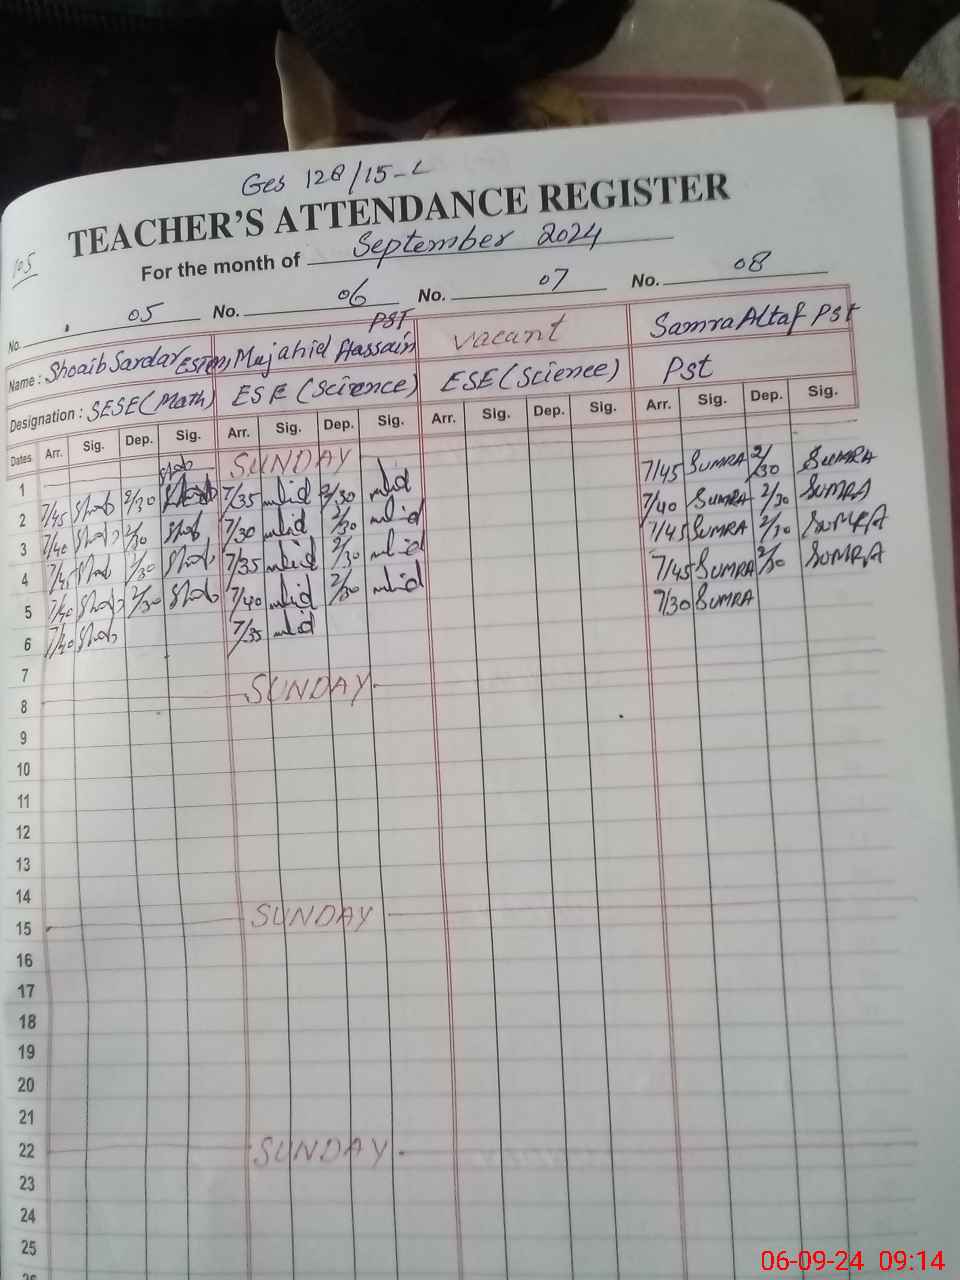 Ges 128/15-L
TEACHER'S ATTENDANCE REGISTER
105
For the month of September 2024
No. 05 No. 06 No. 07 No. 08
Name : Shoaib Sardar Mujahid Hassain PST vacant Samra Altaf Pst
Designation : SESE (Math) ESE (Science) ESE (Science) Pst
Dates Arr. Sig. Dep. Sig. Arr. Sig. Dep. Sig. Arr. Sig. Dep. Sig. Arr. Sig. Dep. Sig.
1 SUNDAY
2 7/45 2/30 7/35 2/30 7/45 SUMRA 2/30 SUMRA
3 7/40 2/30 7/30 2/30 7/40 SUMRA 2/30 SUMRA
4 7/45 2/30 7/35 2/30 7/45 SUMRA 2/30 SUMRA
5 7/40 2/30 7/40 2/30 7/45 SUMRA 2/30 SUMRA
6 7/40 7/35 7/30 SUMRA
7
8 SUNDAY
9
10
11
12
13
14
15 SUNDAY
16
17
18
19
20
21
22 SUNDAY
23
24
25
06-09-24 09:14